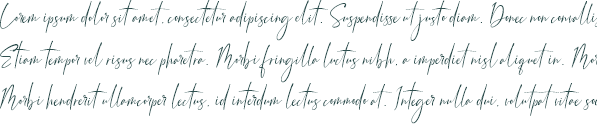 Lorem ipsum dolor sit amet, consectetur adipiscing elit. Suspendisse ut justo diam. Donec non convallis
Etiam tempor vel risus nec pharetra. Morbi fringilla luctus nibh, a imperdiet nisl aliquet in. Mor
Morbi hendrerit ullamcorper lectus, id interdum lectus commodo at. Integer nulla dui, volutpat vitae